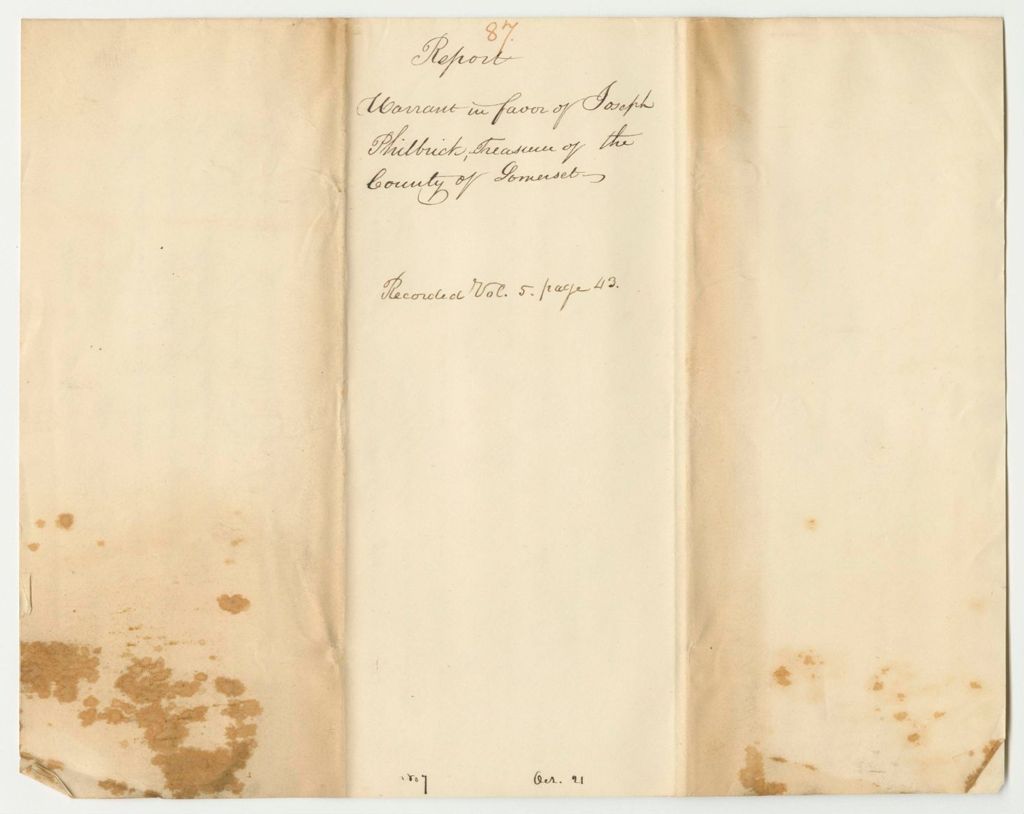 87.
Report
Warrant in favor of Joseph
Philbrick, Treasurer of the
County of Somerset
Recorded Vol. 5. page 43.
Oct. 21